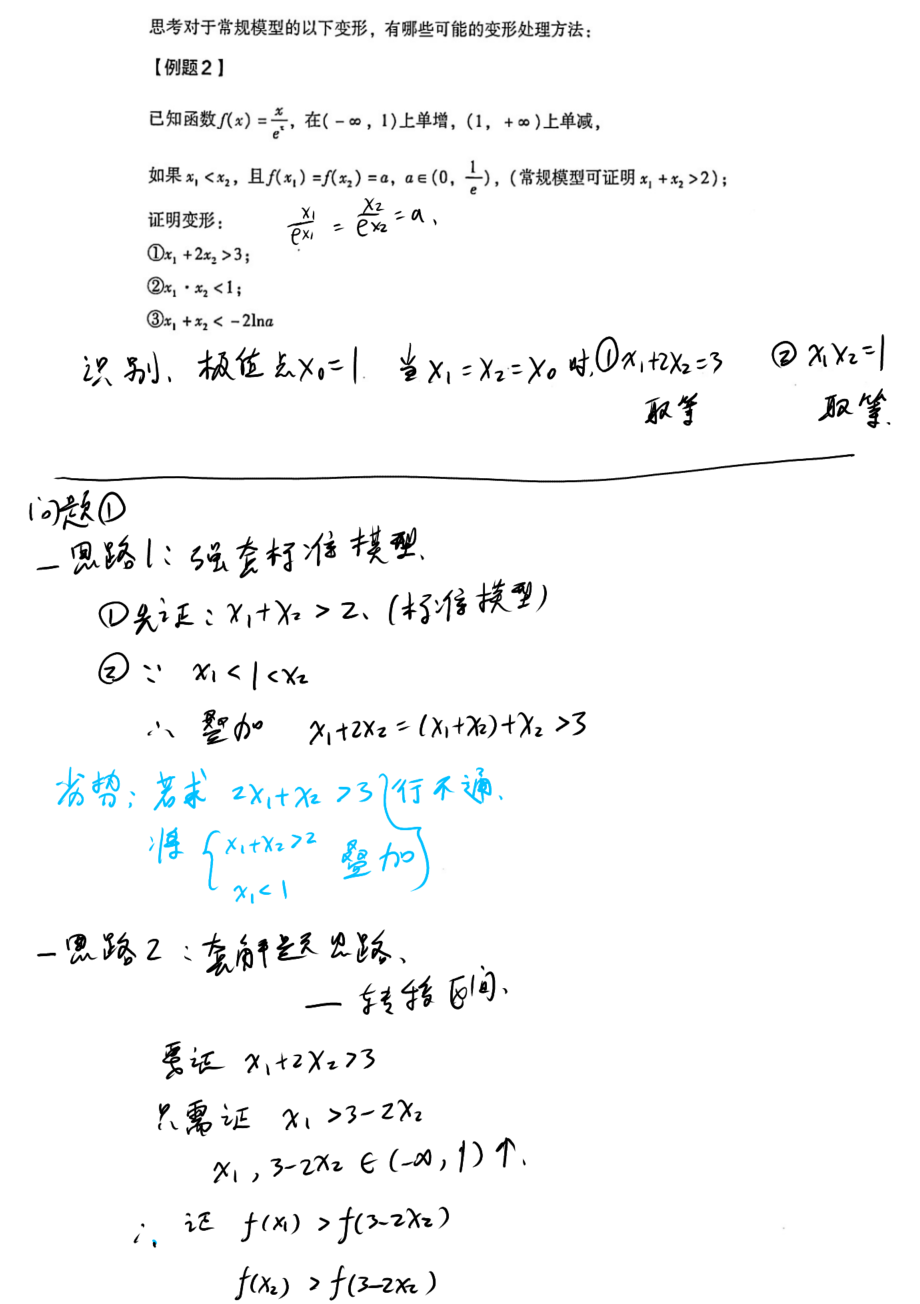 思考对于常规模型的以下变形，有哪些可能的变形处理方法：
【例题2】
已知函数f(x)=x/e^x，在(-∞，1)上单增，(1，+∞)上单减，
如果x₁<x₂，且f(x₁)=f(x₂)=a，a∈(0，1/e)，(常规模型可证明x₁+x₂>2)；
证明变形：
x₁/e^x₁ = x₂/e^x₂ = a、
①x₁+2x₂>3；
②x₁·x₂<1；
③x₁+x₂<-2lna
识别、极值点x₀=1. 当x₁=x₂=x₀时,①x₁+2x₂=3 ②x₁x₂=1
取等 取等.
问题①
—思路1：强套标准模型.
①先证：x₁+x₂>2、(标准模型)
②∵ x₁<1<x₂
∴ 叠加 x₁+2x₂=(x₁+x₂)+x₂>3
劣势：若求 2x₁+x₂>3 行不通.
将 { x₁+x₂>2 叠加
x₁<1
—思路2：套解题思路、
—转移区间、
要证 x₁+2x₂>3
只需证 x₁>3-2x₂
x₁,3-2x₂∈(-∞,1)↑.
∴ 证 f(x₁)>f(3-2x₂)
f(x₂)>f(3-2x₂)